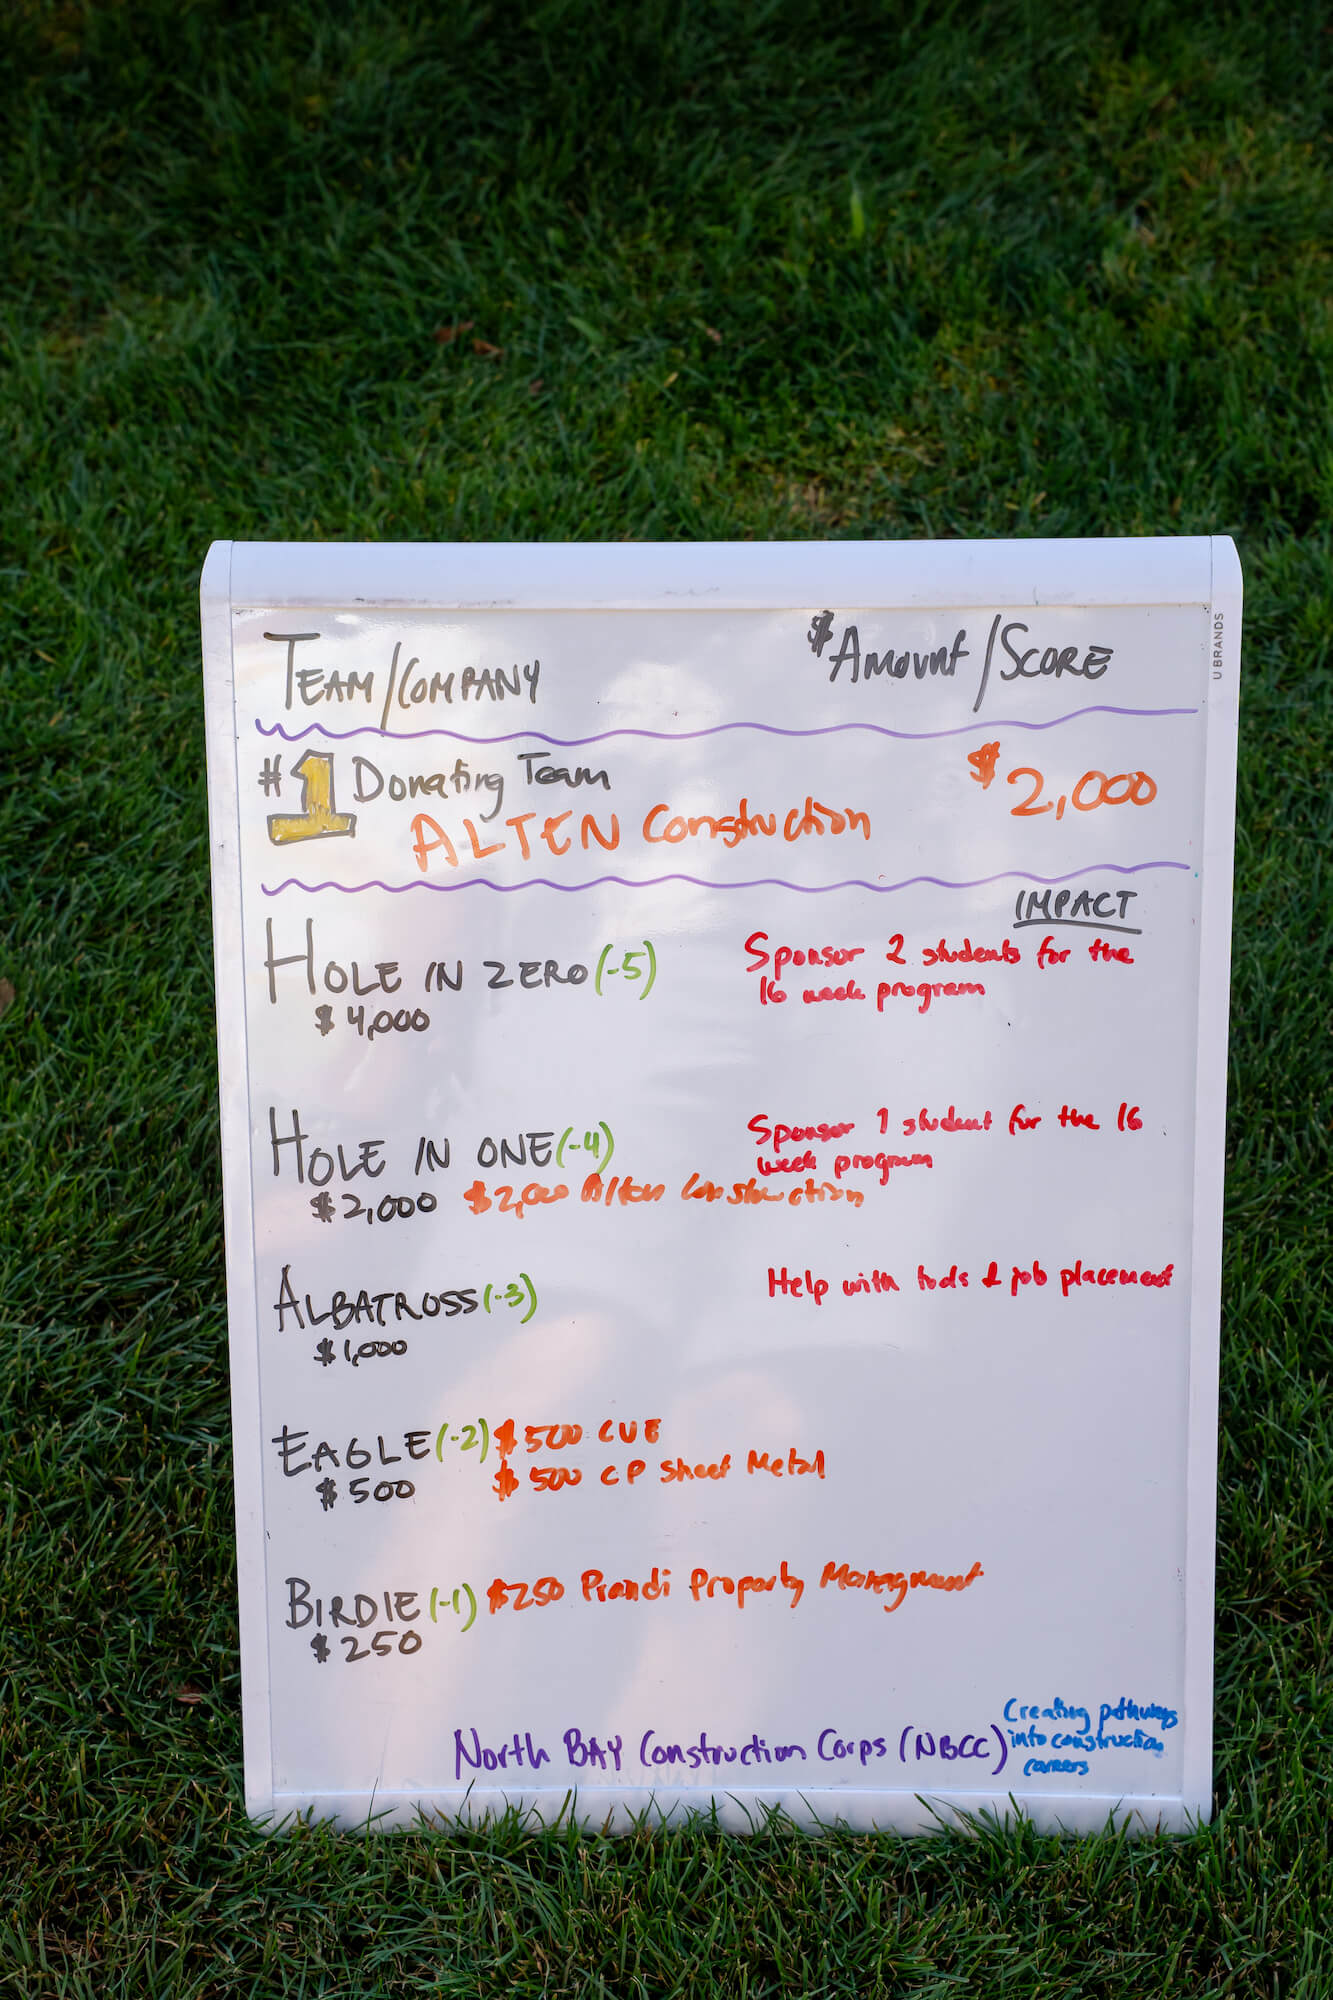 TEAM/COMPANY $Amount/SCORE
U BRANDS
#1 Donating Team $2,000
ALTEN Construction
IMPACT
HOLE IN ZERO (-5) Sponsor 2 students for the
16 week program
$4,000
HOLE IN ONE (-4) Sponsor 1 student for the 16
week program
$2,000 $2,000 Alten Construction
ALBATROSS (-3) Help with tools & job placement
$1,000
EAGLE (-2) $500 CUE
$500 $500 CP Sheet Metal
BIRDIE (-1) $250 Prandi Property Managment
$250
North BAY Construction Corps (NBCC) Creating pathways
into construction
careers